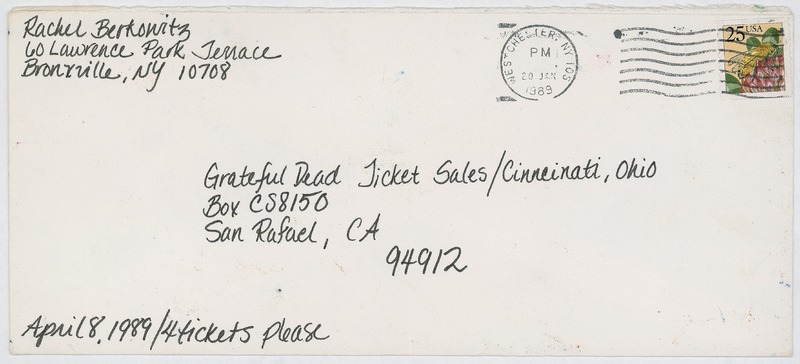 Rachel Berkowitz
60 Lawrence Park Terrace
Bronxville, NY 10708
WESTCHESTER, NY 105
PM
20 JAN
1989
25 USA
Grateful Dead Ticket Sales/Cinncinati, Ohio
Box CS8150
San Rafael, CA
94912
April 8, 1989/4 tickets please